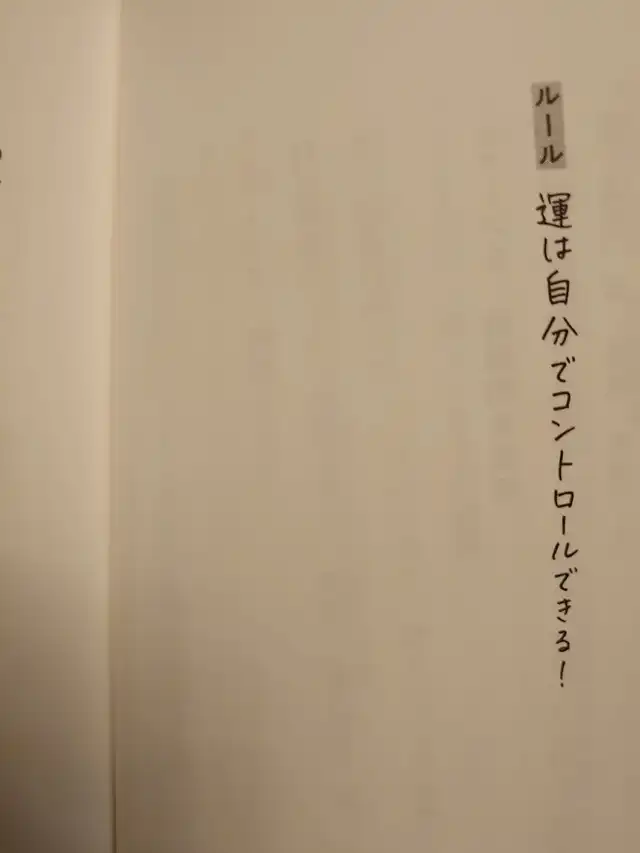 ルール 運は自分でコントロールできる!